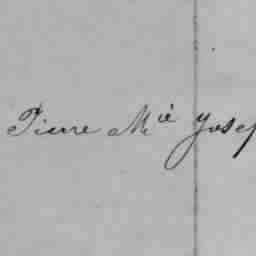 Pierre Mie Josep